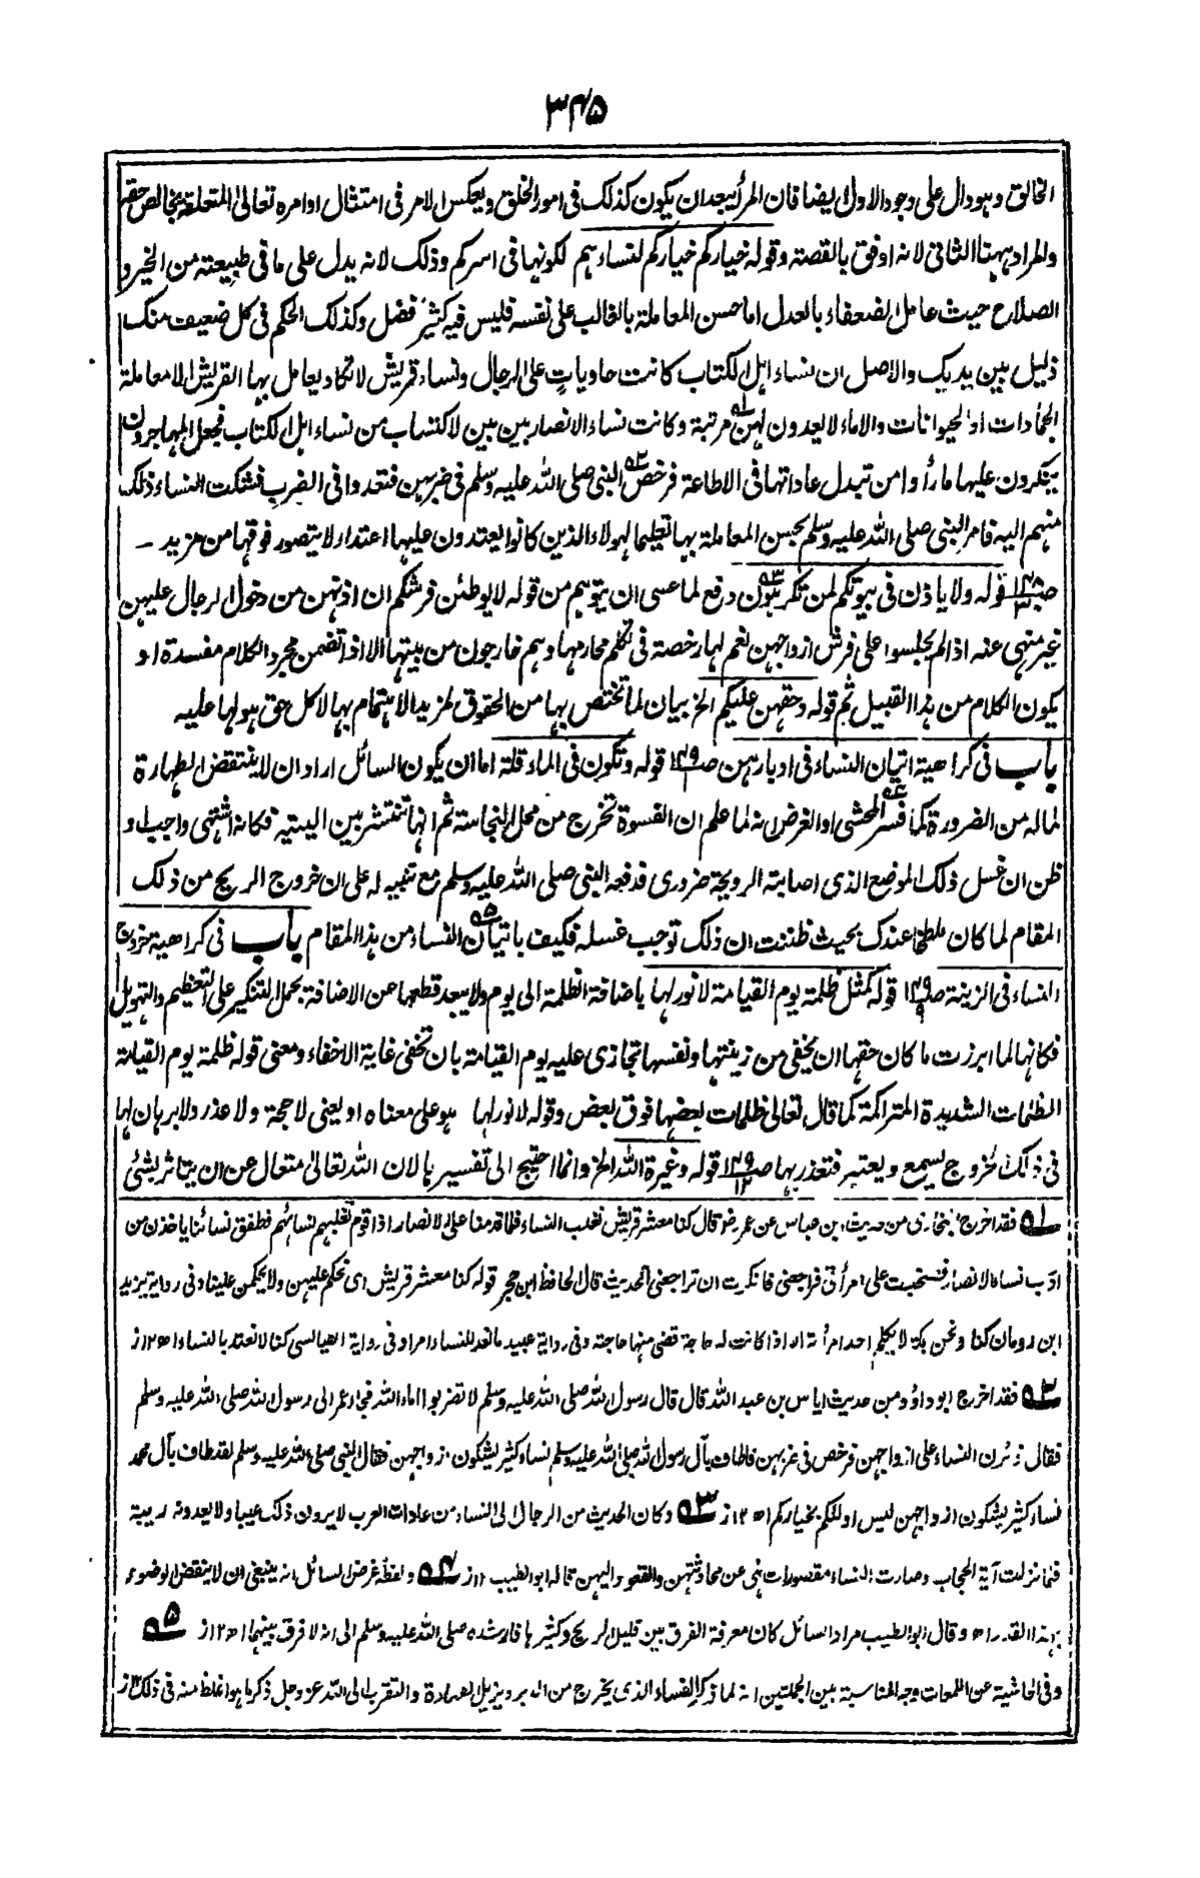 ۳۴۵
الخالق وهو دال على وجود الاول ايضا فان المرأ يبعد ان يكون كذلك فى امور الخلق ويعكس الامر فى امتثال اوامره تعالى المتعلقة بخالص حقه
والمراد ههنا الثانى لانه اوفق بالقصة وقوله خياركم خياركم لنساءهم لكونها فى اسركم وذلك لانه يدل على ما فى طبيعته من الخير و
الصلاح حيث عامل الضعفاء بالعدل اما حسن المعاملة بالغالب على نفسه فليس فيه كثير فضل وكذلك الحكم فى كل ضعيف منك
ذليل بين يديك والاصل ان نساء اهل الكتاب كانت حاويات على الرجال ونساء قريش لا تكاد يعامل بها القريش الا معاملة
الجمادات او الحيوانات والاماء لا يعدون لهن مرتبة وكانت نساء الانصار بين بين لاكتساب من نساء اهل الكتاب فجعل المهاجرون
ينكرون عليها ما رأوا من تبدل عاداتها فى الاطاعة فرخص النبى صلى الله عليه وسلم فى ضربهن فتعدوا فى الضرب فشكت النساء ذلك
منهم اليه فامر النبى صلى الله عليه وسلم بحسن المعاملة بها تعليما لهولاء الذين كانوا يعتدون عليها اعتدار لا يتصور فوقها من مزيد -
قوله ولا ياذن فى بيوتكم لمن تكرهون دفع لما عسى ان يتوهم من قوله لا يوطئن فرشكم ان اذنهن من دخول الرجال عليهن
غير منهى عنه اذا لم يجلسوا على فرش ازواجهن نعم لها رخصة فى تكلم محارمها وهم خارجون من بيتها الا اذا تضمن مجرد الكلام مفسدة او
يكون الكلام من هذا القبيل ثم قوله وحقهن عليكم الخ بيان لما تختص بها من الحقوق لمزيد الاهتمام بها لا كل حق هو لها عليه
باب فى كراهية اتيان النساء فى ادبارهن صـ۱۴۹ قوله وتكون فى الماء قلة اما ان يكون السائل اراد ان لا ينتقض الطهارة
لما له من الضرورة كما فسر المحشى او الغرض انه لما علم ان الفسوة تخرج من محل النجاسة ثم انها تنتشر بين اليتيه فكانه اشتهى واجيب و
ظن ان غسل ذلك الموضع الذى اصابته الرويحة ضرورى فدفعه النبى صلى الله عليه وسلم مع تنبيه له على ان خروج الريح من ذلك
المقام لما كان ملطخا عندك بحيث ظننت ان ذلك توجب غسله فكيف باتيان النساء من هذا المقام باب فى كراهية خروج
النساء فى الزينة صـ۱۴۹ قوله كمثل ظلمة يوم القيامة لا نور لها باضافة الظلمة الى يوم ولا يبعد قطعها عن الاضافة بحمل التنكير على التعظيم والتهويل
فكانها لما ابرزت ما كان حقها ان يخفى من زينتها ونفسها تجازى عليه يوم القيامة بان تخفى غاية الاخفاء ومعنى قوله ظلمة يوم القيامة
الظلمات الشديدة المتراكمة كما قال تعالى ظلمات بعضها فوق بعض وقوله لا نور لها هو على معناه او يعنى لا حجة ولا عذر ولا برهان لها
فى ذلك الخروج يسمع ويعتبر فتعذر بها صـ۱۴۹ قوله وغيرة الله الخ وانما احتيج الى تفسيره بالان الله تعالى متعال عن ان يتاثر بشئ
۵۱ فقد اخرج البخارى من حديث ابن عباس عن عمر رض قال كنا معشر قريش نغلب النساء فلما قدمنا على الانصار اذا قوم تغلبهم نساءهم فطفق نسائنا ياخذن من
ادب نساء الانصار فصخبت على امرأتى فراجعنى فانكرت ان تراجعنى الحديث قال الحافظ ابن حجر قوله كنا معشر قريش اى نحكم عليهن ولا يحكمن علينا وفى رواية يزيد
ابن رومان كنا ونحن بمكة لا يكلم احد امرأته الا اذا كانت له حاجة قضى منها حاجته وفى رواية عبيد ما نعد للنساء امرا وفى رواية الطيالسى كنا لا نعتد بالنساء اھ ۱۲ز
۵۲ فقد اخرج ابو داؤد من حديث اياس بن عبد الله قال قال رسول الله صلى الله عليه وسلم لا تضربوا اماء الله فجاء عمر الى رسول الله صلى الله عليه وسلم
فقال ذئرن النساء على ازواجهن فرخص فى ضربهن فاطاف بآل رسول الله صلى الله عليه وسلم نساء كثير يشكون ازواجهن فقال النبى صلى الله عليه وسلم لقد طاف بآل محمد
نساء كثير يشكون ازواجهن ليس اولئكم بخياركم اھ ۱۲ز ۵۳ وكان الحديث من الرجال الى النساء من عادات العرب لا يرون ذلك عيبا ولا يعدونه ريبة
فلما نزلت آية الحجاب وصارت النساء مقصورات نهى عن محادثتهن والقعود اليهن قاله ابو الطيب ۱۲ز ۵۴ ولفظه غرض السائل انه ينبغى ان لا ينقض الوضوء
بهذا القدر اھ وقال ابو الطيب مراد السائل كان معرفة الفرق بين قليل الريح وكثيرها فارشده صلى الله عليه وسلم الى انه لا فرق بينهما اھ ۱۲ز ۵۵
وفى الحاشية عن اللمعات وجه المناسبة بين الجملتين انه لما ذكر الفساء الذى يخرج من الدبر ويزيل الطهارة والتقرب الى الله عز وجل ذكر ما هو اغلظ منه فى ذلك ۱۲ز